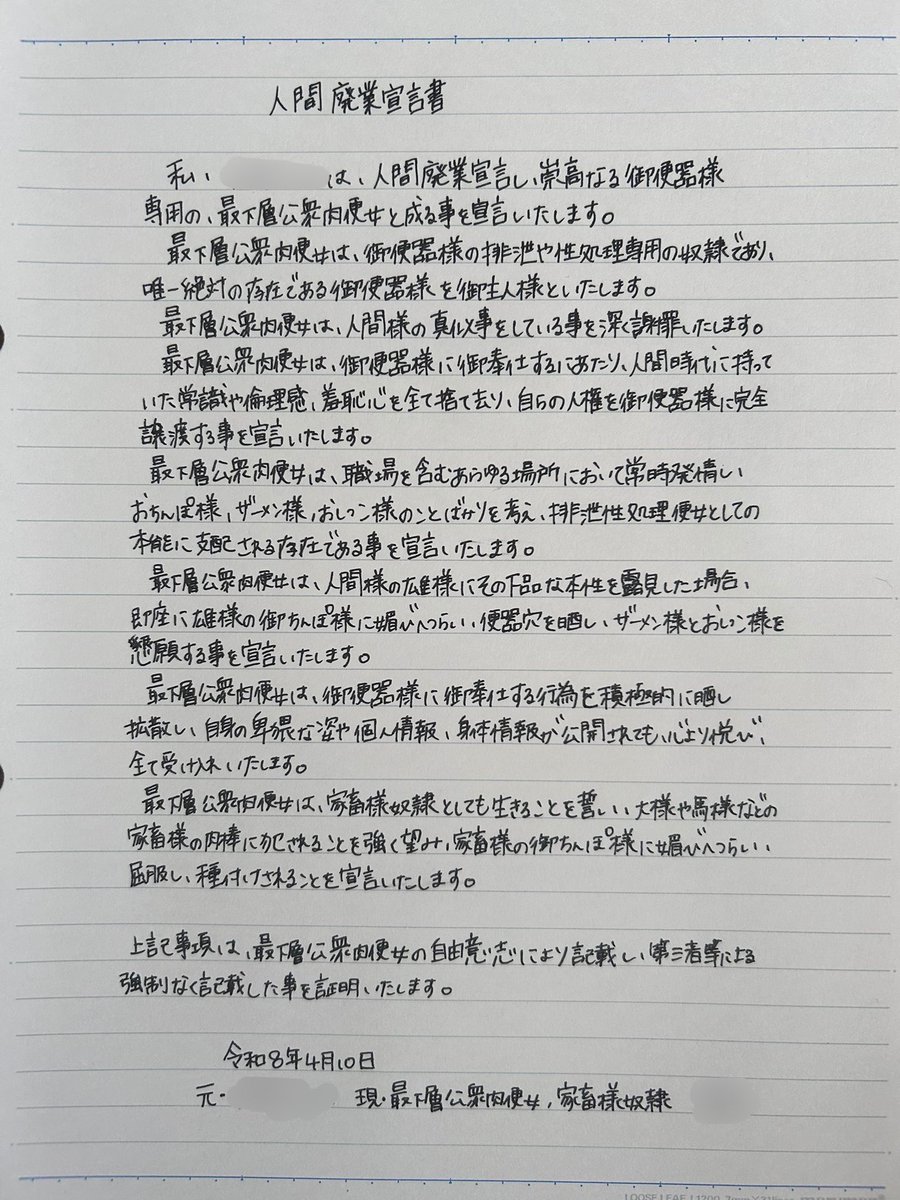 人間廃業宣言書
私、は、人間廃業宣言し、崇高なる御便器様
専用の、最下層公衆肉便女と成る事を宣言いたします。
最下層公衆肉便女は、御便器様の排泄や性処理専用の奴隷であり、
唯一絶対の存在である御便器様を御主人様といたします。
最下層公衆肉便女は、人間様の真似事をしている事を深く謝罪いたします。
最下層公衆肉便女は、御便器様に御奉仕するにあたり、人間時代に持って
いた常識や倫理感、羞恥心を全て捨て去り、自らの人権を御便器様に完全
譲渡する事を宣言いたします。
最下層公衆肉便女は、職場を含むあらゆる場所において常時発情し、
おちんぽ様、ザーメン様、おしっこ様のことばかりを考え、排泄性処理便女としての
本能に支配される存在である事を宣言いたします。
最下層公衆肉便女は、人間様の雄様にその下品な本性を露見した場合、
即座に雄様の御ちんぽ様に媚びへつらい、便器穴を晒し、ザーメン様とおしっこ様を
懇願する事を宣言いたします。
最下層公衆肉便女は、御便器様に御奉仕する行為を積極的に晒し
拡散し、自身の卑猥な姿や個人情報、身体情報が公開されても、心より悦び、
全て受け入れいたします。
最下層公衆肉便女は、家畜様奴隷としても生きることを誓い、犬様や馬様などの
家畜様の肉棒に犯されることを強く望み、家畜様の御ちんぽ様に媚びへつらい、
屈服し、種付けされることを宣言いたします。
上記事項は、最下層公衆肉便女の自由意志により記載し、第三者等による
強制なく記載した事を証明いたします。
令和8年4月10日
元・ 現・最下層公衆肉便女、家畜様奴隷